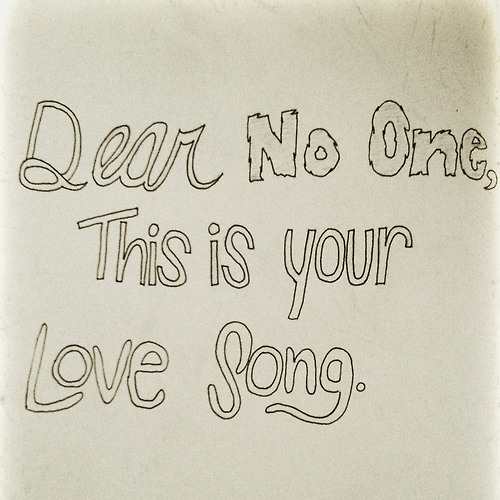 Dear No One,
This is your
Love Song.